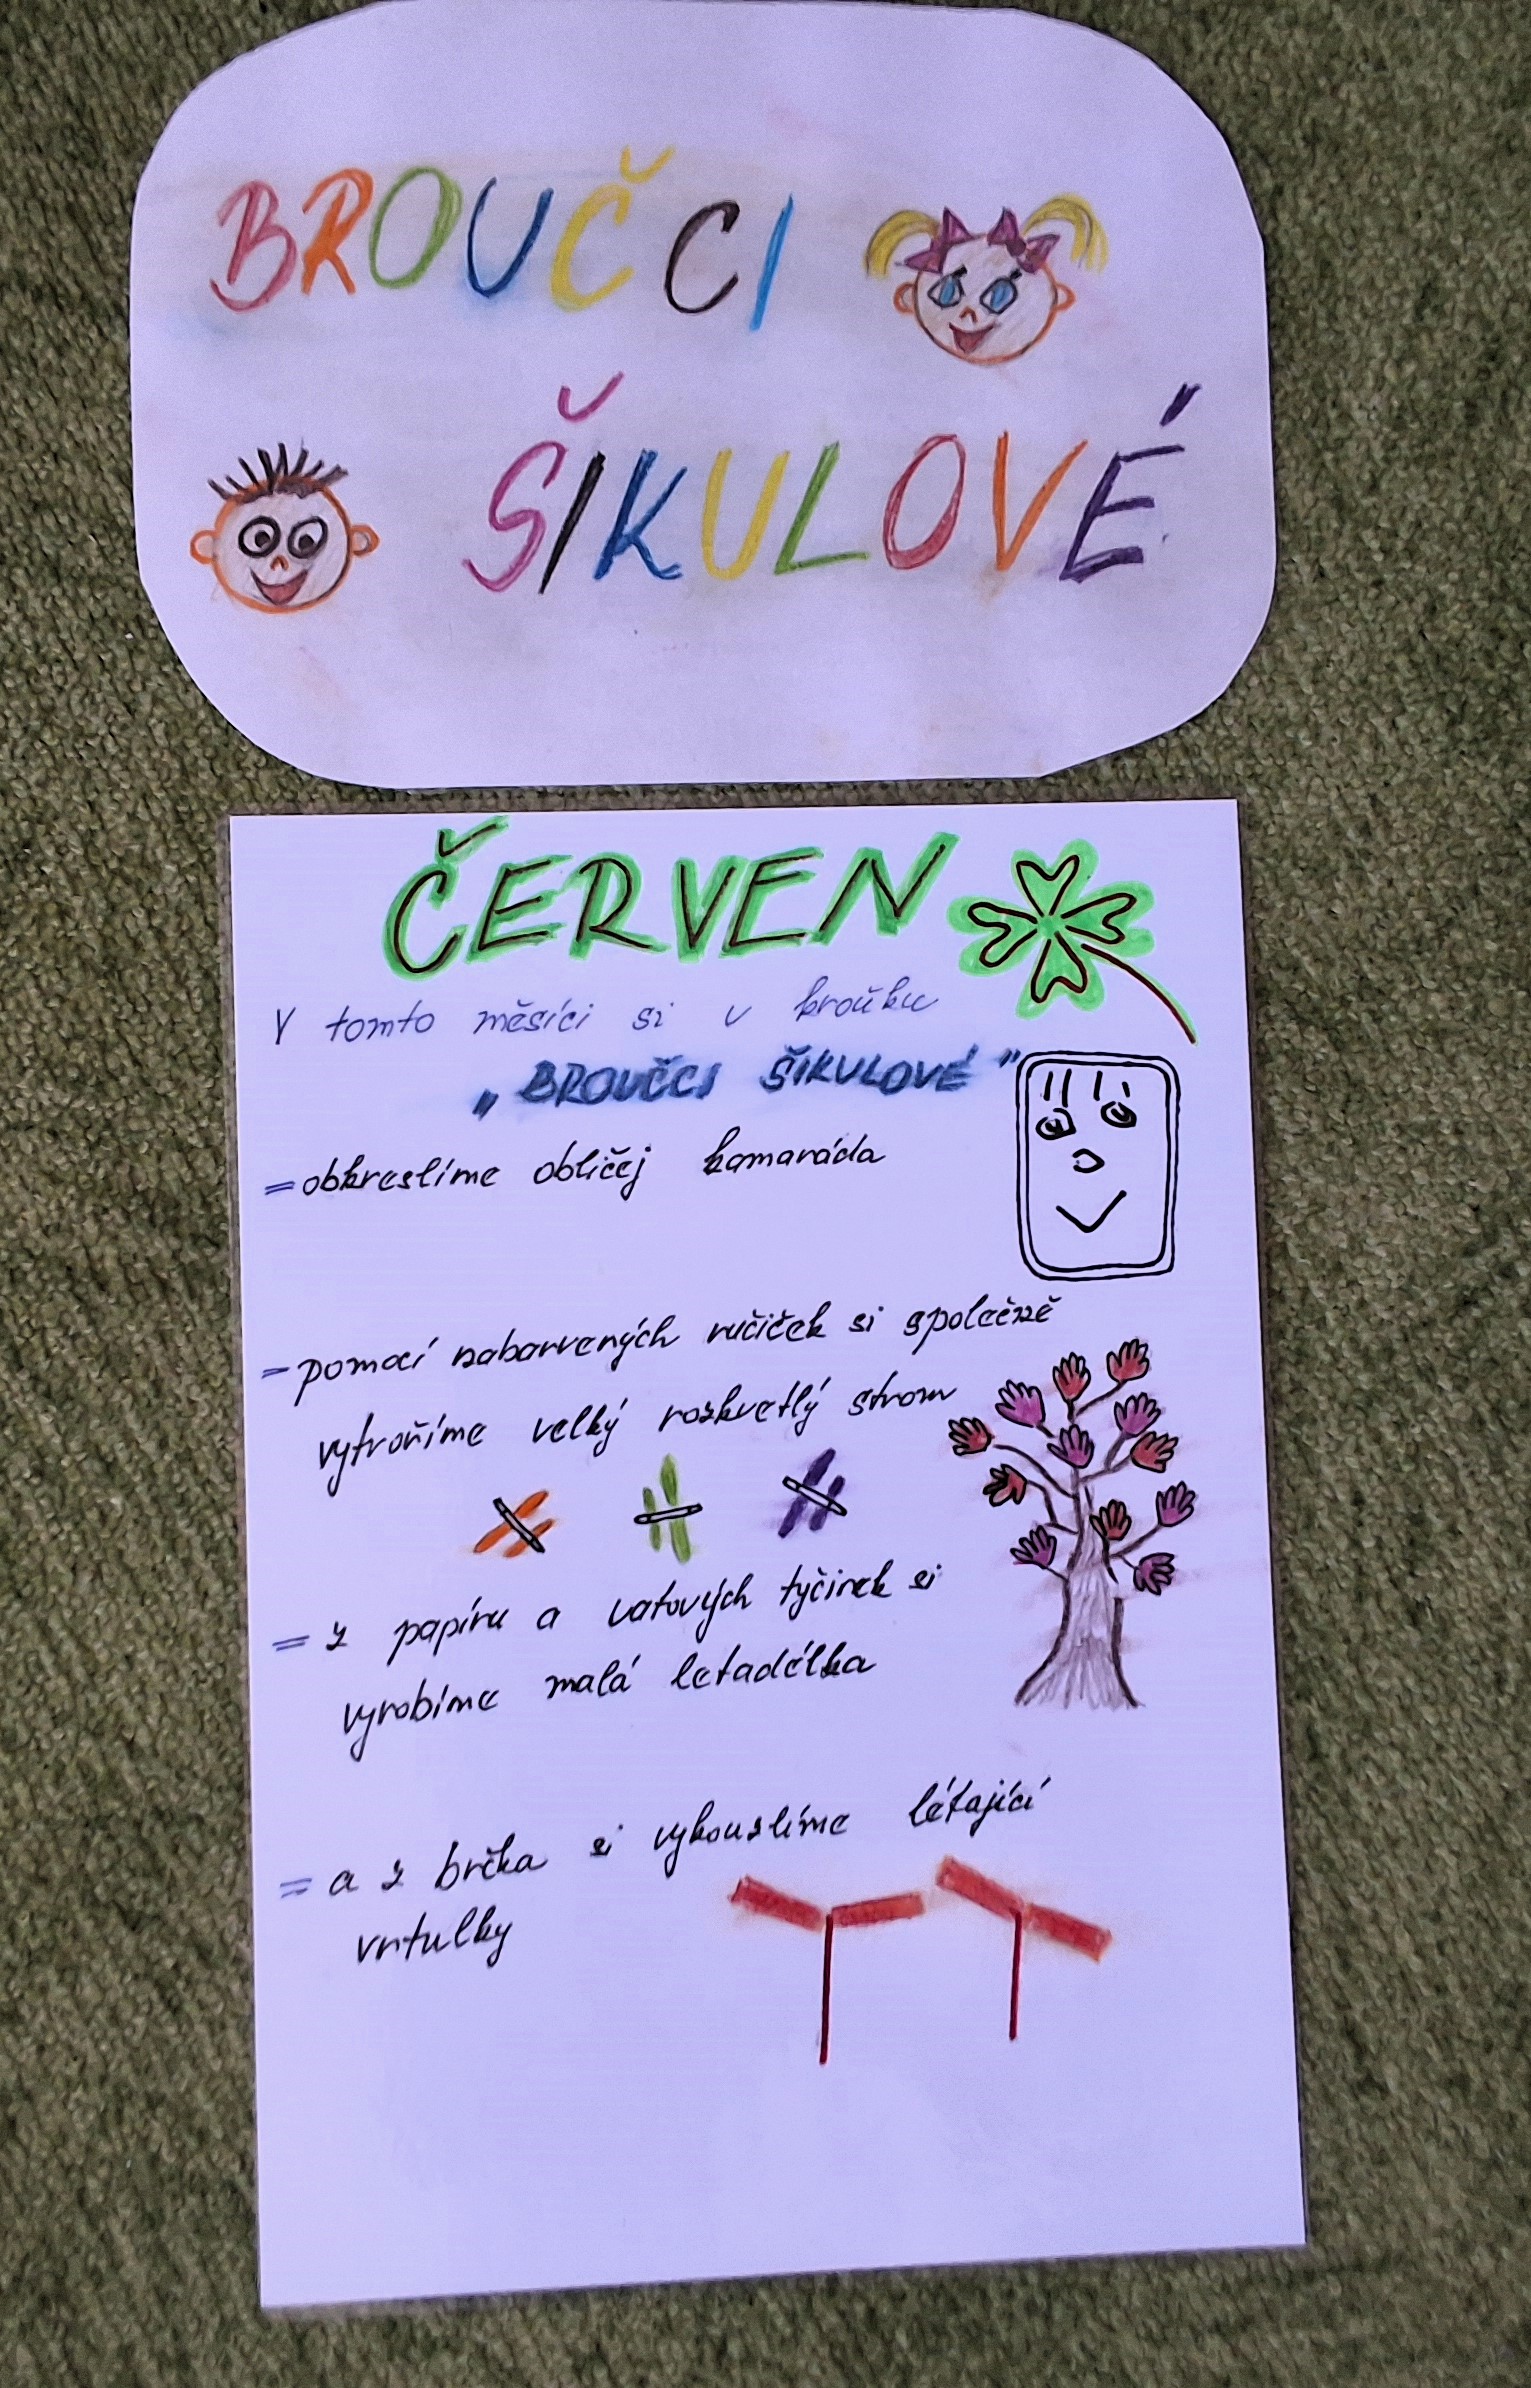 BROUČCI
ŠIKULOVÉ
ČERVEN
V tomto měsíci si v kroužku
„BROUČCI ŠIKULOVÉ"
=obkreslíme obličej kamaráda
-pomocí nabarvených ručiček si společně
vytvoříme velký rozkvetlý strom
= z papíru a vatových tyčinek si
vyrobíme malá letadélka
= a z brčka si vykouzlíme létající
vrtulky